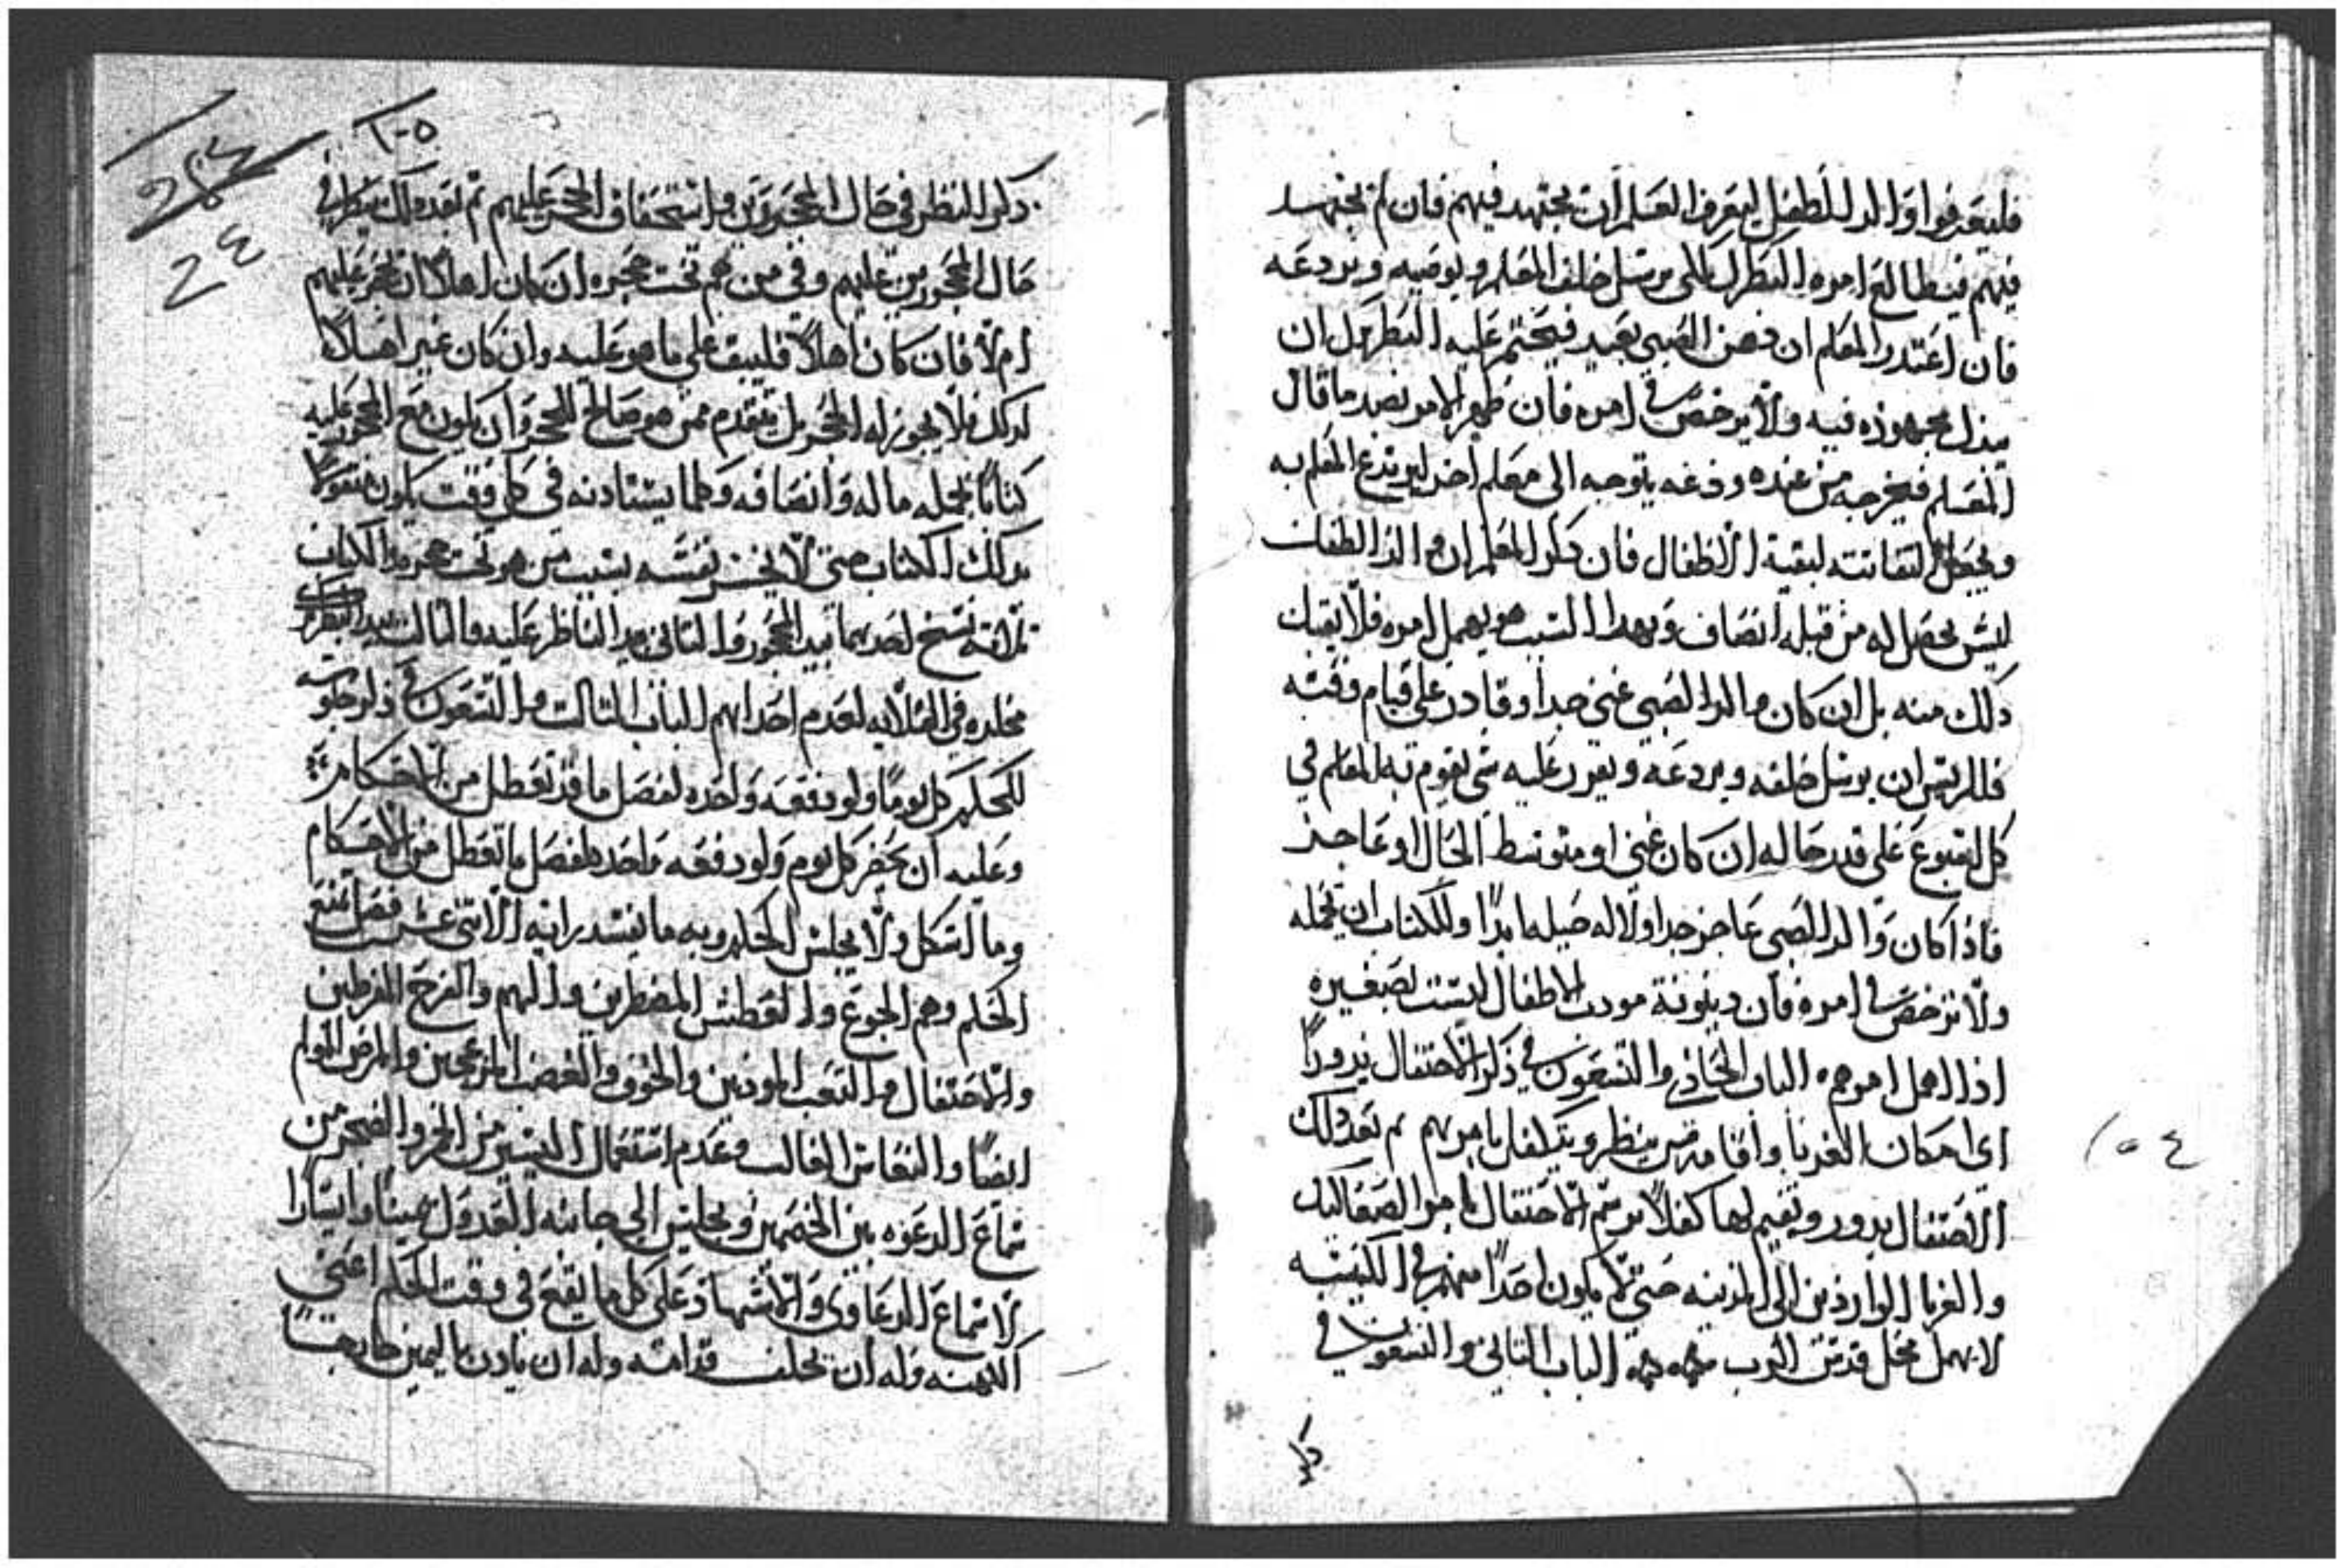 فليعرفوا والد الطفل ليعرف المعلم ان يجتهد فيهم فان لم يجتهد
فيهم فيطالع امره البطرك بالذي يرسل خلف المعلم ويوصيه ويردعه
فان اعتدر المعلم ان دهن الصبي بعيد فيحتم عليه البطرك ان
يبدل مجهوده فيه ولا يرخص في امره فان ظهر الامر بضد ما قال
المعلم فيخرجه من عنده ودعه يتوجه الى معلم اخر ليرتدع المعلم به
ويجعل التفاتته لبقية الاطفال فان ذكر المعلم ان والد الطفل
ليس يحصل له من قبله انصاف وبهدا السبب هو يهمل امره فلا يقبل
ذلك منه بل ان كان والد الصبي غني جدا وقادر على قيام وقته
فللريس ان يرسل خلفه ويردعه ويقرر عليه شي يقوم به للمعلم في
كل اسبوع على قدر حاله ان كان غني او متوسط الحال او عاجز
فاذا كان والد الصبي عاجز جدا ولا له حيله ابدا وللكتاب ان يحمله
ولا يرخص في امره فان دينونة موت الاطفال ليست بصغيره
اذا اهمل امرهم الباب الحادي والتسعون في ذكر الاحتفال
اي امكان الغربا واقامة من ينظر ويتكفل بامرهم ثم بعد ذلك
الاحتفال يدور ويقيم لها كفلا برسم الاحتفال بامر الصعاليك
والغربا الواردين الى المدينه حتى لا يكون احدا منهم في الكنيسه
لا يهمل محل قدس الرب الباب التاني والتسعون في
ذكر
١٥٤
١٠٥
24
ذكر النظر في حال المحجورين واستحقاق الحجر عليهم ثم بعد ذلك ينظر في
حال المحجورين عليهم وفي من هم تحت حجره ان كان اهلا ان يحجر عليهم
ام لا فان كان اهلا فليبق على ما هو عليه وان كان غير اهلا
لدلك فلا يجوز له الحجر بل يتقدم ممن هو صالح للحجر وان يكون مع المحجور عليه
كتابا بجملة ماله وانصافه وكلما يستادنه في كل وقت يكون
بدلك الكتاب حتى لا يخسر نفسه بسبب من هو تحت حجره والكتاب
ثلاثة نسخ احدهما بيد المحجور والتاني بيد الناظر عليه والتالت بيد البطرك
مخلده في القلايه لعدم احداهم الباب التالت والتسعون في ذكر جلوسه
للحكم كل يوما ولو دفعه واحده لفصل ما قد تعطل من الاحكام
وعليه ان يحضر كل يوم ولو دفعه واحده لفصل ما تعطل من الاحكام
وما اشكل ولا يجلس للحكم وبه ما يفسد رايه الاتني عشر فصل تمنع
الحكم وهم الجوع والعطش المضطرين والهم والفرح المفرطين
والاحتفال والتعب المودين والخوف والغضب المزعجين والمرض المولم
ايضا والنعاس الغالب وعدم استعمال اليسير من الخمر والضجر من
سماع الدعوه بين الخصمين ويجلس الى جانبه العدول يمينا وايسارا
لاسماع الدعاوى والاشهاد على كل ما يقع في وقت الحكم اعني
الكهنه وله ان يحلف قدامه وله ان يادن باليمين